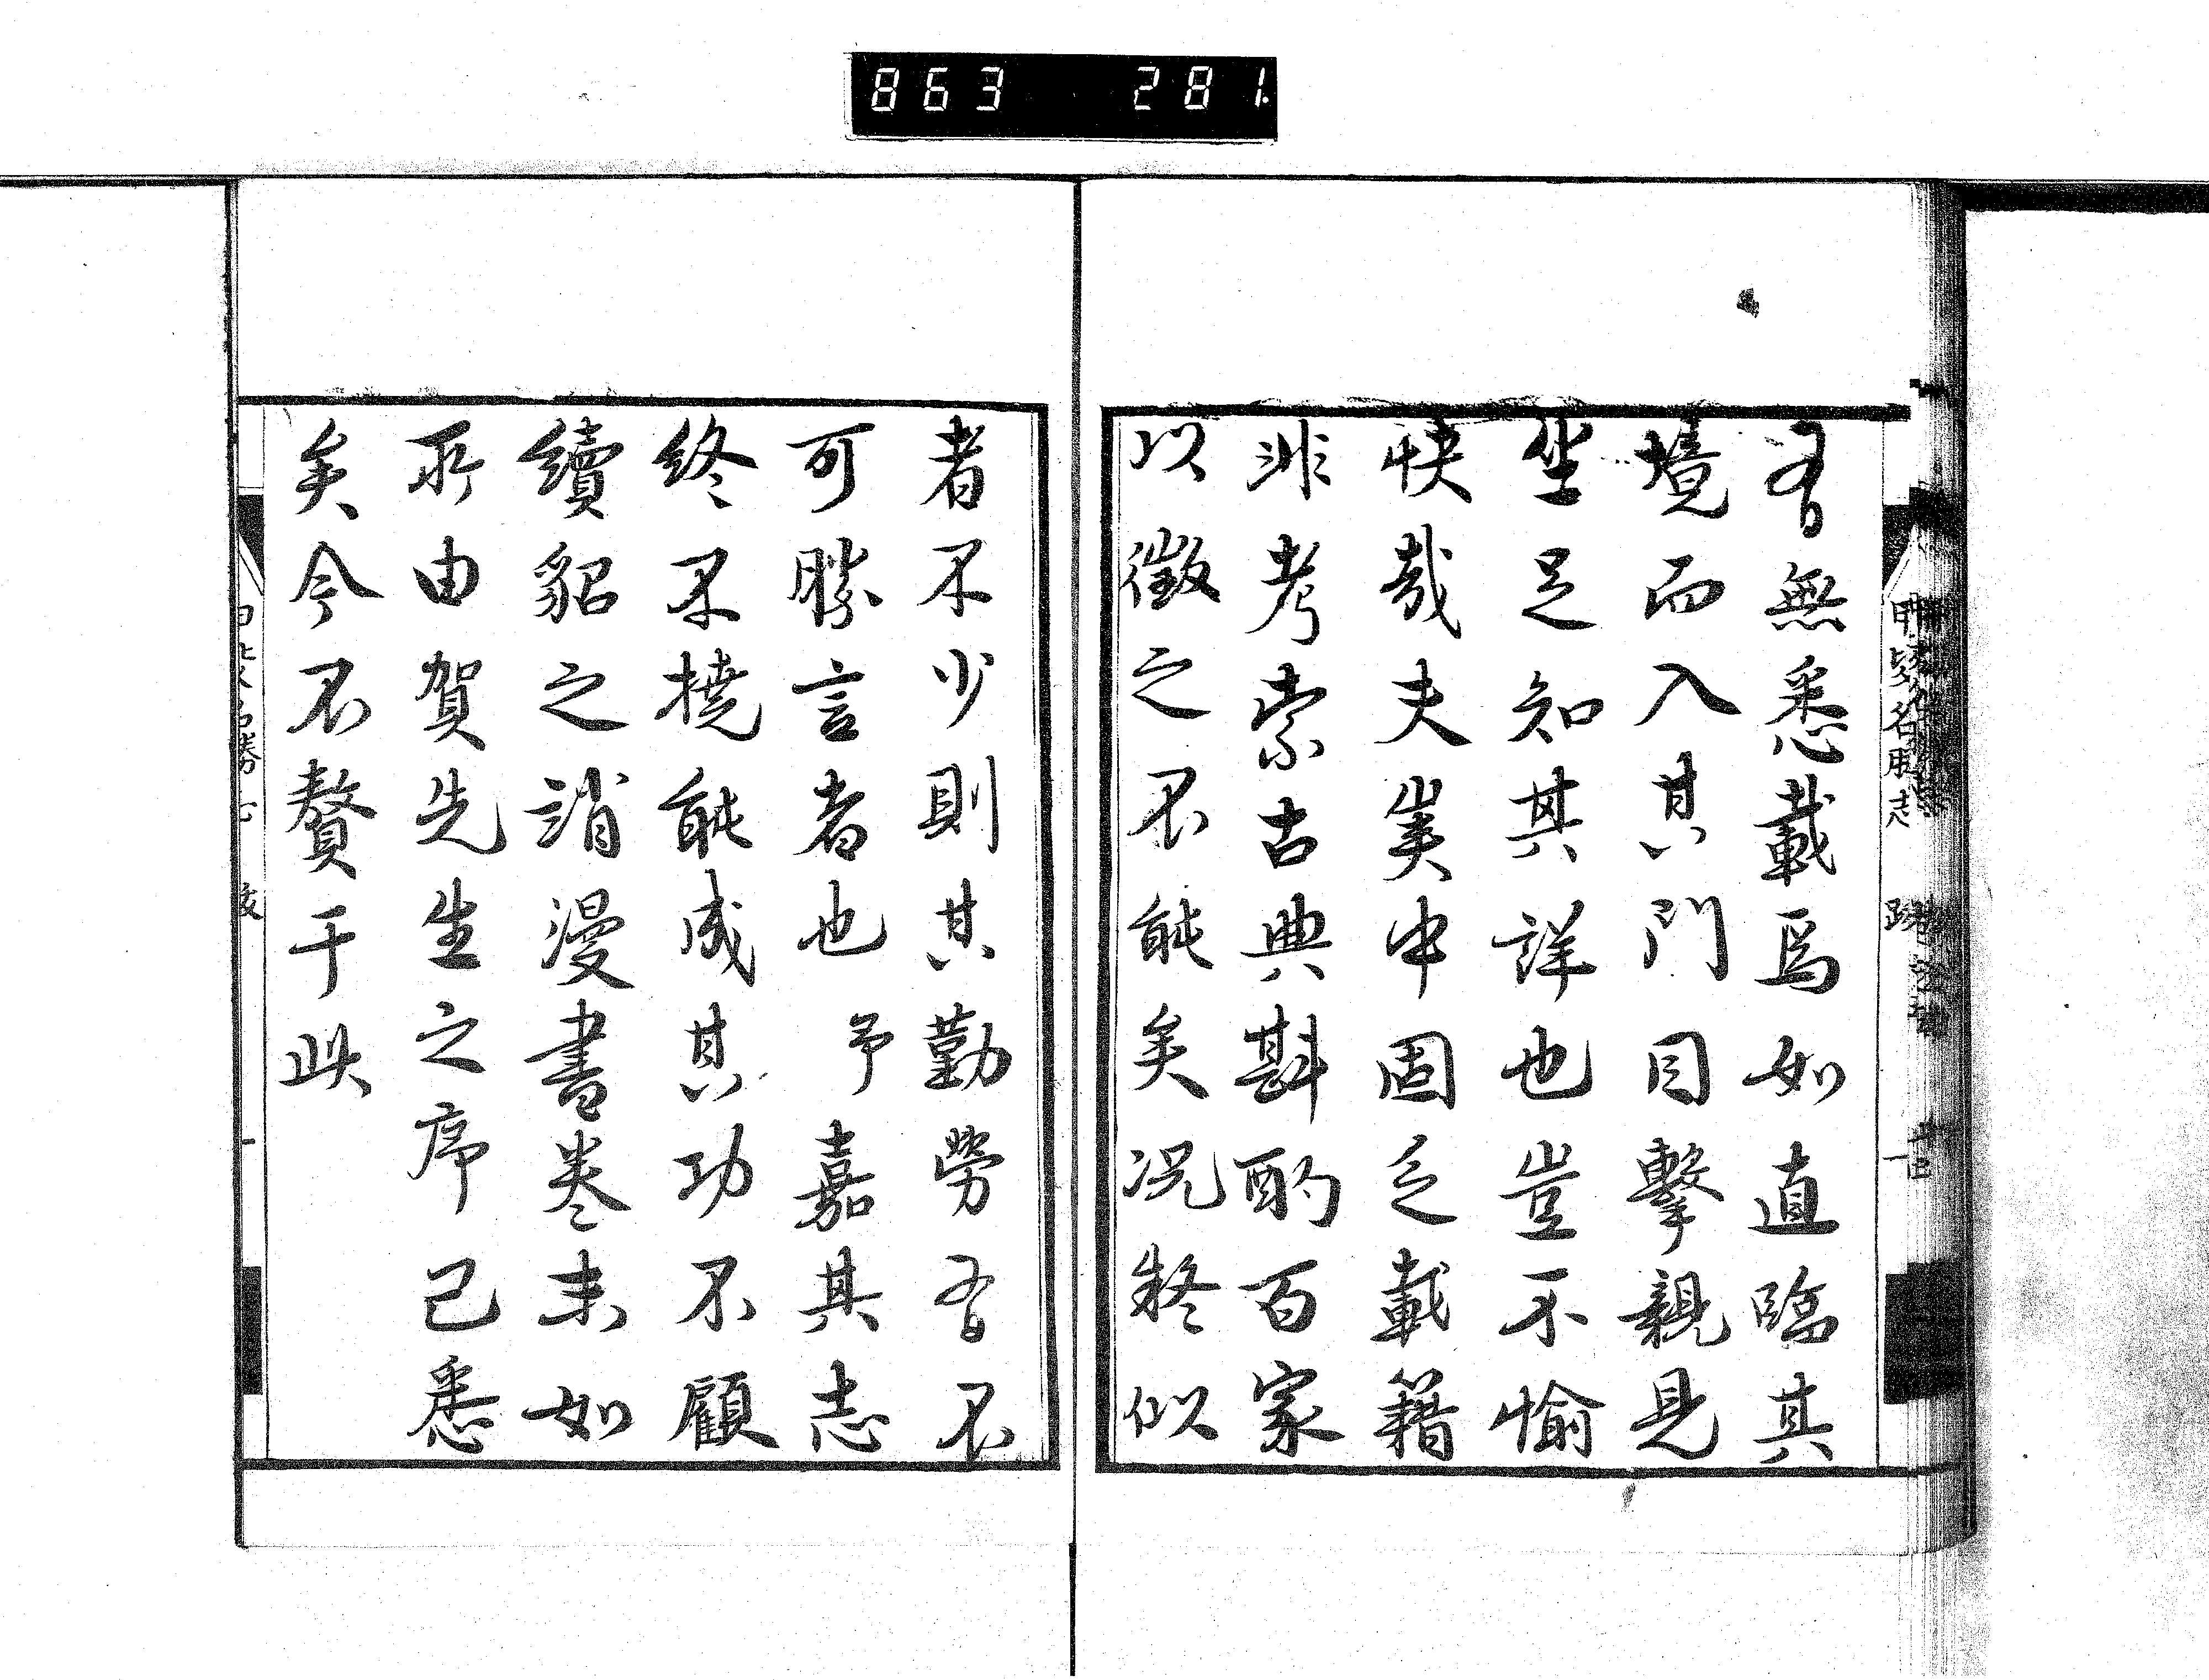 863 281.
有無悉載焉如直臨其
境而入其門目擊親見
坐足知其詳也豈不愉
快哉夫峡中固乏載籍
非考索古典斟酌百家
以徵之不能矣况疑似
者不少則其勤勞有不
可勝言者也予嘉其志
終不撓能成其功不顧
續貂之誚漫書巻末如
所由賀先生之序已悉
矣今不贅于此
甲斐名勝志 跋 一